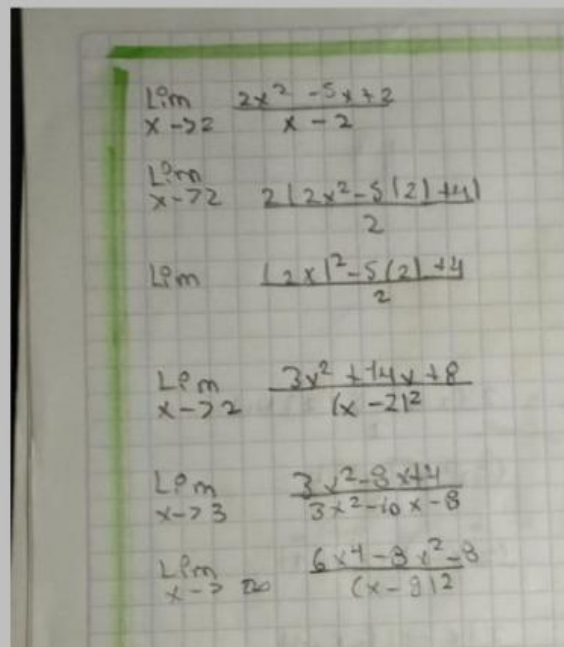 Lim 2x² -5x+2
x->2 x-2
Lim
x->2 2(2x²-5(2)+4)
2
Lim (2x)²-5(2)+4
2
Lim 3x²+14x+8
x->2 (x-2)²
Lim 3x²-8x+4
x->3 3x²-10x-8
Lim 6x4-8x²-8
x->∞ (x-8)2